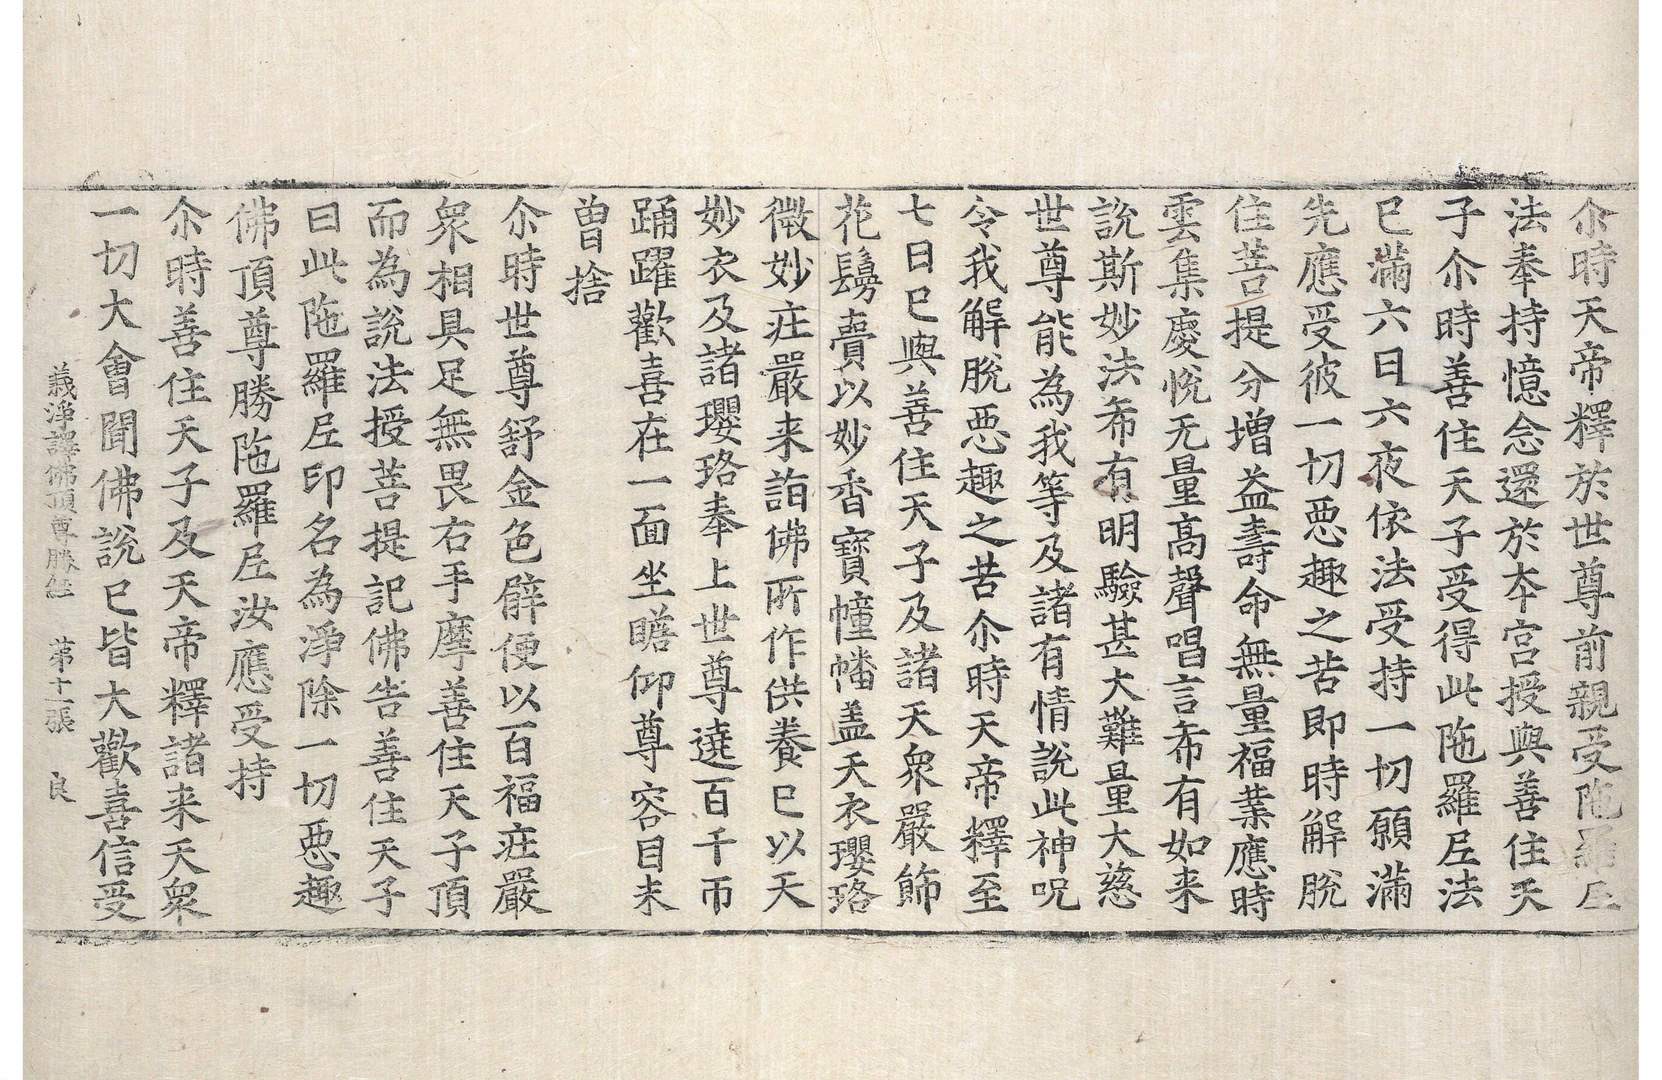 尒時天帝釋於世尊前親受陁羅𡰱
法奉持憶念還於本宮授與善住天
子尒時善住天子受得此陁羅𡰱法
已滿六日六夜依法受持一切願滿
先應受彼一切惡趣之苦即時解脫
住菩提分增益壽命無量福業應時
雲集慶悅无量高聲唱言希有如来
說斯妙法希有明驗甚大難量大慈
世尊能為我等及諸有情說此神呪
令我解脫惡趣之苦尒時天帝釋至
七日已與善住天子及諸天衆嚴飾
花鬘賷以妙香寶幢幡盖天衣瓔珞
微妙庄嚴来詣佛所作供養已以天
妙衣及諸瓔珞奉上世尊遶百千帀
踊躍歡喜在一面坐瞻仰尊容目未
曾捨
尒時世尊舒金色臂便以百福庄嚴
衆相具足無畏右手摩善住天子頂
而為說法授菩提記佛告善住天子
曰此陁羅𡰱印名為淨除一切惡趣
佛頂尊勝陁羅𡰱汝應受持
尒時善住天子及天帝釋諸来天衆
一切大會聞佛說已皆大歡喜信受
義淨譯佛頂尊勝経 苐十一張 良